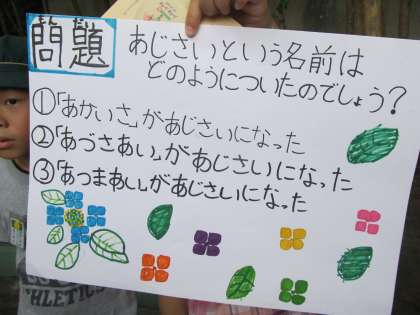 問題
もんだい
あじさいという名前は
どのようについたのでしょう?
①「あかいさ」があじさいになった
②「あづさあい」があじさいになった
③「あつまあい」があじさいになった
THLETICS